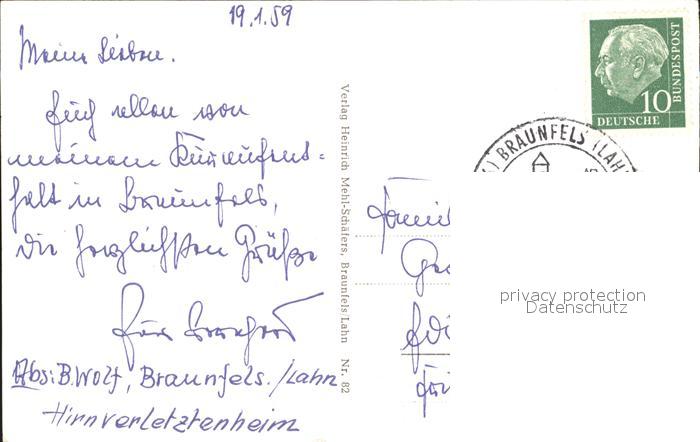 19.1.59
Meine Lieben.
Euch allen von
meinem Kuraufent-
halt in Braunfels,
die herzlichsten Grüße
Euer
Abs: B. Wolf, Braunfels./Lahn
Hirnverletztenheim
Verlag Heinrich Mehl-Schäfers, Braunfels/Lahn Nr. 82
10
DEUTSCHE
BUNDESPOST
BRAUNFELS (LAHN
Famil
privacy protection
Datenschutz